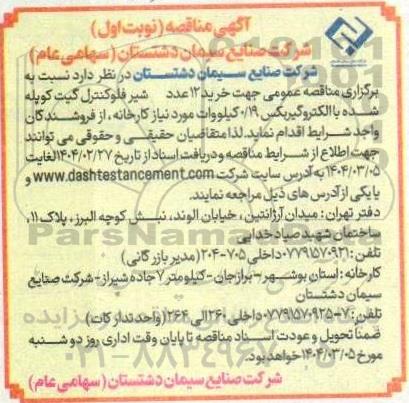 آگهی مناقصه (نوبت اول)
شرکت صنایع سیمان دشتستان (سهامی عام)
شرکت صنایع سیمان دشتستان در نظر دارد نسبت به
برگزاری مناقصه عمومی جهت خرید ۱۲ عدد شیر فلوکنترل گیت کوپله
شده با الکتروگیربکس ۰/۱۹ کیلووات مورد نیاز کارخانه، از فروشندگان
واجد شرایط اقدام نماید. لذا متقاضیان حقیقی و حقوقی می توانند
جهت اطلاع از شرایط مناقصه و دریافت اسناد از تاریخ ۱۴۰۴/۰۲/۲۷ لغایت
۱۴۰۴/۰۳/۰۵ به آدرس سایت شرکت www.dashtestancement.com و
یا یکی از آدرس های ذیل مراجعه نمایند.
دفتر تهران: میدان آرژانتین، خیابان الوند، نبش کوچه البرز، پلاک ۱۱،
ساختمان شهید صیاد خدایی
تلفن: ۰۷۷۹۱۵۷۰۹۲۱ داخلی ۷۰۵-۲۰۴ (مدیر بازرگانی)
کارخانه: استان بوشهر - برازجان - کیلومتر ۷ جاده شیراز - شرکت صنایع
سیمان دشتستان
تلفن: ۷-۰۷۷۹۱۵۷۰۹۲۵ داخلی ۲۶۰ الی ۲۶۴ (واحد تدارکات)
ضمناً تحویل و عودت اسناد مناقصه تا پایان وقت اداری روز دوشنبه
مورخ ۱۴۰۴/۰۳/۰۵ خواهد بود.
شرکت صنایع سیمان دشتستان (سهامی عام)
ParsNamadData
۰۲۱-۸۸۳۴۹۶۷۰